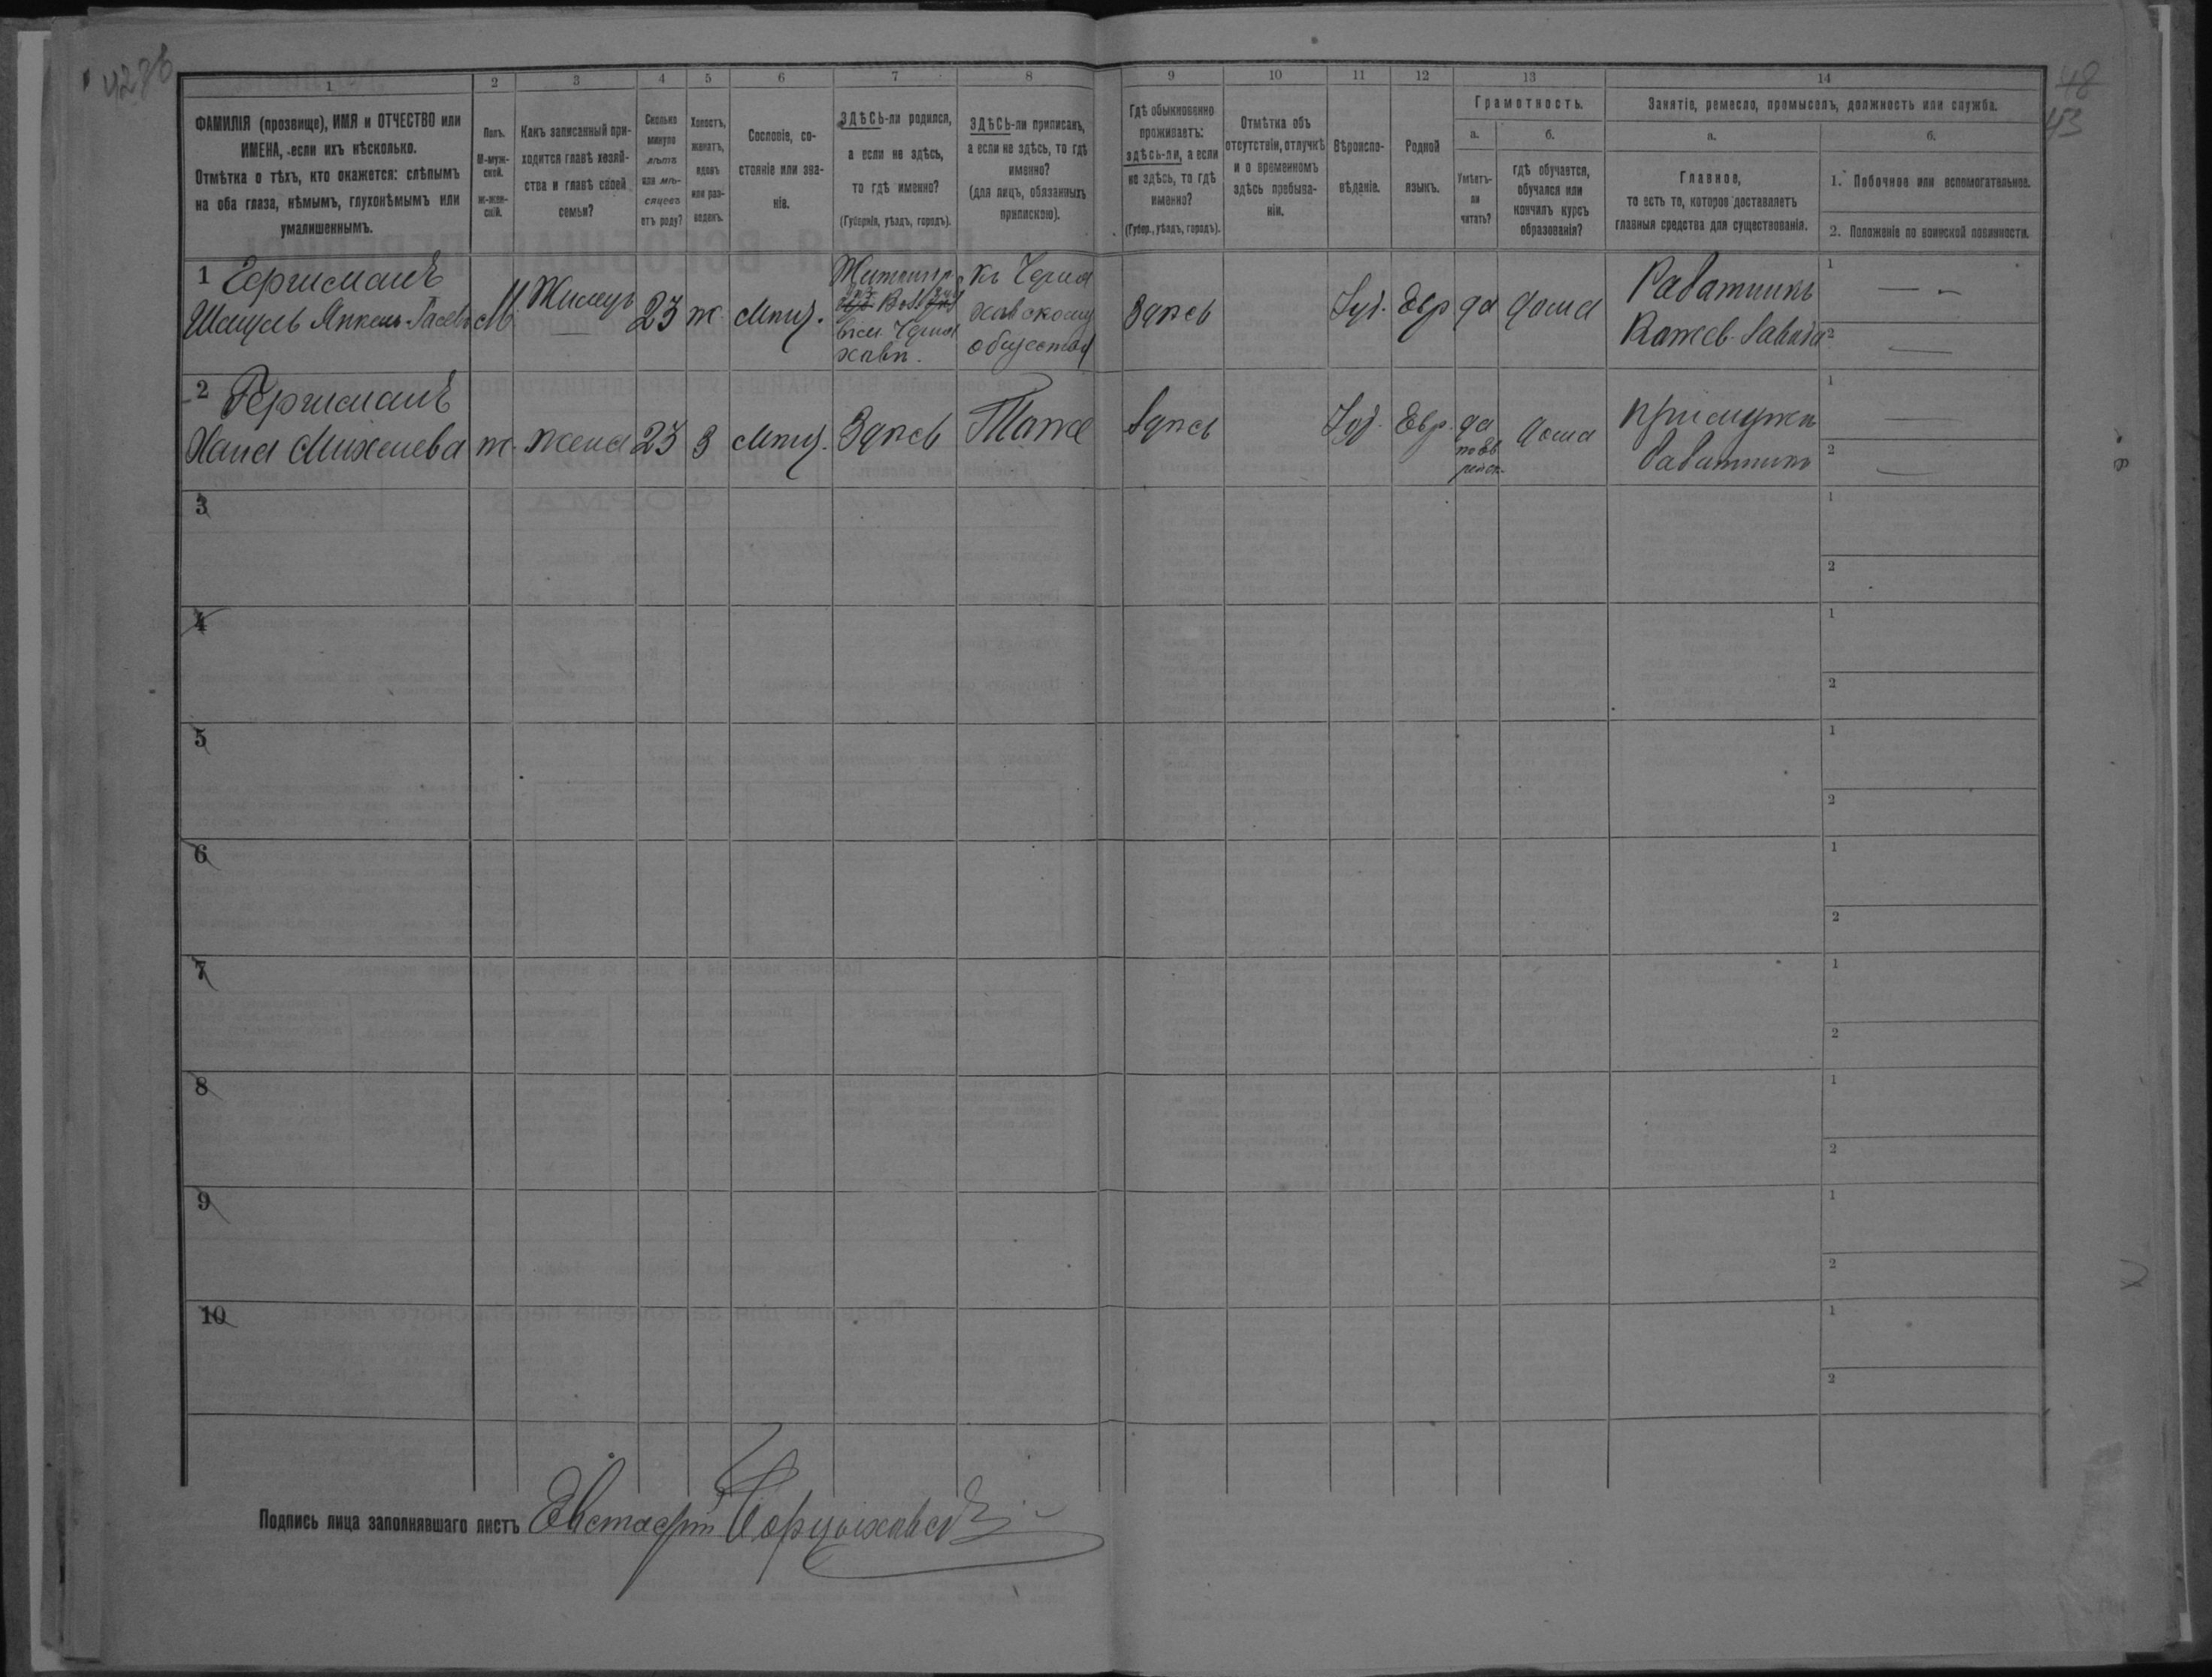 4286
48
43
1 2 3 4 5 6 7 8 9 10 11 12 13 14
ФАМИЛІЯ (прозвище), ИМЯ и ОТЧЕСТВО или
ИМЕНА, если ихъ нѣсколько.
Отмѣтка о тѣхъ, кто окажется: слѣпымъ
на оба глаза, нѣмымъ, глухонѣмымъ или
умалишеннымъ.
Полъ.
М-муж-
ской.
ж-жен-
скій.
Какъ записанный при-
ходится главѣ хозяй-
ства и главѣ своей
семьи?
Сколько
минуло
лѣтъ
или мѣ-
сяцевъ
отъ роду?
Холостъ,
женатъ,
вдовъ
или раз-
веденъ.
Сословіе, со-
стояніе или зва-
ніе.
ЗДѢСЬ-ли родился,
а если не здѣсь,
то гдѣ именно?
(Губернія, уѣздъ, городъ).
ЗДѢСЬ-ли приписанъ,
а если не здѣсь, то гдѣ
именно?
(для лицъ, обязанныхъ
припискою).
Гдѣ обыкновенно
проживаетъ:
здѣсь-ли, а если
не здѣсь, то гдѣ
именно?
(Губер., уѣздъ, городъ).
Отмѣтка объ
отсутствіи, отлучкѣ
и о временномъ
здѣсь пребыва-
ніи.
Вѣроиспо-
вѣданіе.
Родной
языкъ.
Грамотность.
а.
Умѣетъ-
ли
читать?
б.
гдѣ обучается,
обучался или
кончилъ курсъ
образованія?
Занятіе, ремесло, промыселъ, должность или служба.
а.
Главное,
то есть то, которое доставляетъ
главныя средства для существованія.
б.
1. Побочное или вспомогательное.
2. Положеніе по воинской повинности.
1 Гершманъ
Шмуль Янкель М Жилецъ 23 ж мѣщ.
къ Черня
ховскому
обществу
Здѣсь Іуд. Евр да дома
Работникъ
Кожев. завода
1
2
2 Гершманъ
Хана ж. жена 23 З мѣщ. Здѣсь Тоже Здѣсь Іуд. Евр. да
по Ев
рейск.
дома
при мужѣ
работникъ
1
2
3
1
2
4
1
2
5
1
2
6
1
2
7
1
2
8
1
2
9
1
2
10
1
2
Подпись лица заполнявшаго листъ Евстафій